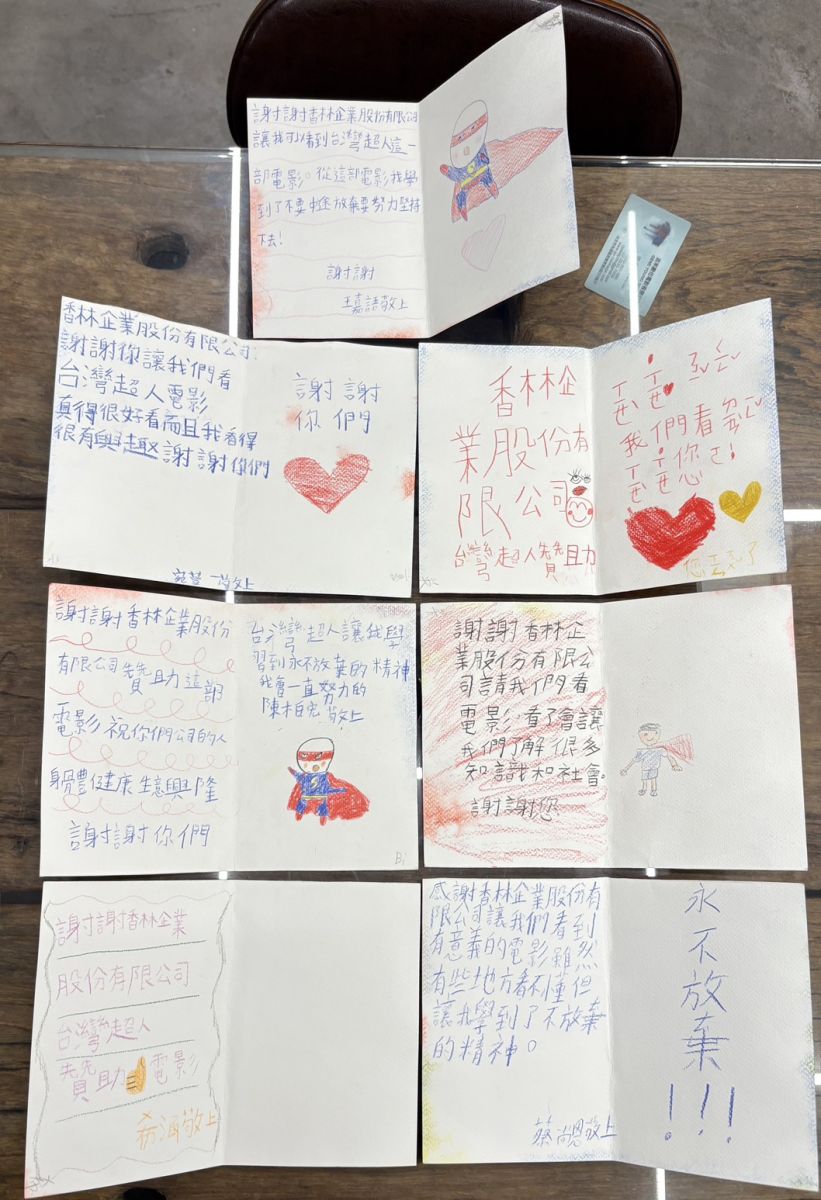 謝謝香林企業股份有限公司
讓我可以看到台灣超人這一
部電影。從這部電影我學
到了不要中途放棄要努力堅持
下去!
謝謝
王嘉語敬上
香林企業股份有限公司:
謝謝你讓我們看
台灣超人電影
真得很好看而且我看得
很有興趣謝謝你們
敬上
謝謝
你們
香林企
業股份有
限公司
台灣超人贊助
ㄒㄧㄝˋ ㄒㄧㄝ˙
我們看
您
您
謝謝香林企業股份
有限公司贊助這部
電影祝你們公司的人
身體健康生意興隆
謝謝你們
台灣超人讓我學
習到永不放棄的精神
我會一直努力的
陳柏 敬上
謝謝香林企
業股份有限公
司請我們看
電影,看了會讓
我們了解很多
知識和社會。
謝謝您
謝謝香林企業
股份有限公司
台灣超人
贊助 電影
希涵敬上
感謝香林企業股份有
限公司讓我們看到
有意義的電影雖然
有些地方看不懂但
讓我學到了不放棄
的精神。
蔡 敬上
永
不
放
棄
!!!